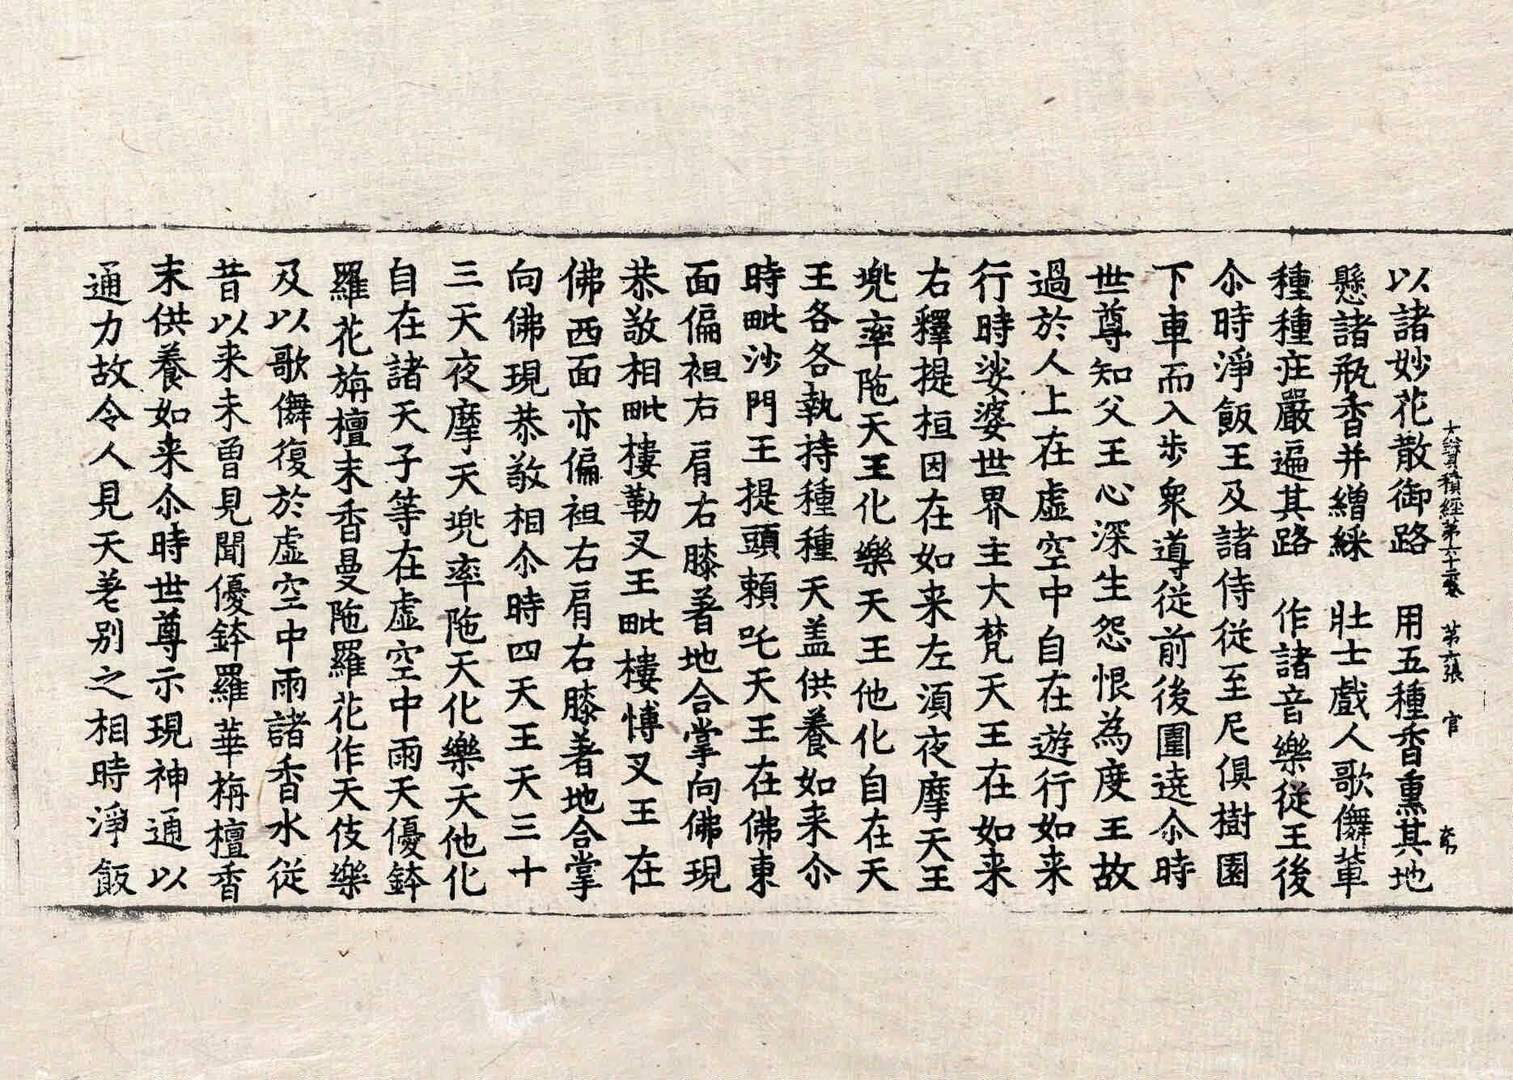 大寶積經第六十一卷　第二張　官
以諸妙花散御路　用五種香熏其地
懸諸瓶香并繒綵　壯士戲人歌儛輩
種種莊嚴遍其路　作諸音樂從王後
尒時淨飯王及諸侍從至尼俱樹園
下車而入步衆導從前後圍遶尒時
世尊知父王心深生怨恨為度王故
過於人上在虛空中自在遊行如来
行時娑婆世界主大梵天王在如来
右釋提桓因在如来左湏夜摩天王
兠率陁天王化樂天王他化自在天
王各各執持種種天盖供養如来尒
時毗沙門王提頭頼吒天王在佛東
面偏袒右肩右膝著地合掌向佛現
恭敬相毗樓勒叉王毗樓博叉王在
佛西面亦偏袒右肩右膝著地合掌
向佛現恭敬相尒時四天王天三十
三天夜摩天兠率陁天化樂天他化
自在諸天子等在虛空中雨天優鉢
羅花旃檀末香曼陁羅花作天伎樂
及以歌儛復於虛空中雨諸香水從
昔以来未曾見聞優鉢羅華栴檀香
末供養如来尒時世尊示現神通以
通力故令人見天差別之相時淨飯